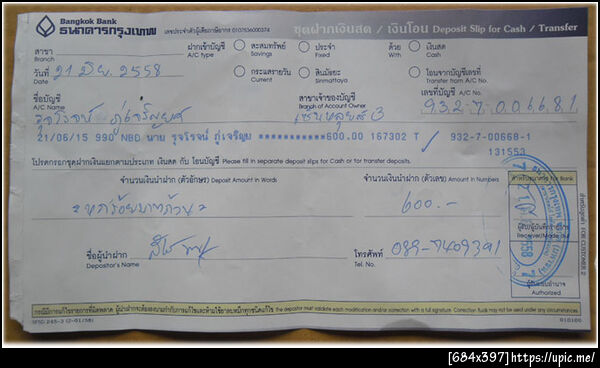 Bangkok Bank
ธนาคารกรุงเทพ
เลขประจำตัวผู้เสียภาษีอากร 0107536000374
ชุดฝากเงินสด / เงินโอน Deposit Slip for Cash / Transfer
สาขา
Branch
ฝากเข้าบัญชี
A/C type
สะสมทรัพย์
Savings
ประจำ
Fixed
ด้วย
With
เงินสด
Cash
วันที่ 21 มิย. 2558
Date
กระแสรายวัน
Current
สินมัธยะ
Sinmattaya
โอนจากบัญชีเลขที่
Transfer from A/C No.
ชื่อบัญชี
A/C Name
สาขาเจ้าของบัญชี
Branch of Account Owner
เลขที่บัญชี
A/C No.
932-7-00668-1
รุจโรจน์ ภู่เจริญยศ
21/06/15 990 NBD นาย รุจโรจน์ ภู่เจริญย ***********600.00 167302 T 932-7-00668-1
131553
โปรดกรอกชุดฝากเงินแยกตามประเภท เงินสด กับ โอนบัญชี Please fill in separate deposit slips for Cash or for transfer deposits.
จำนวนเงินนำฝาก (ตัวอักษร) Deposit Amount in Words
จำนวนเงินนำฝาก (ตัวเลข) Amount in Numbers
สำหรับธนาคาร For Bank
=หกร้อยบาทถ้วน=
600.-
ผู้รับเงิน/ผู้บันทึก
Received/Made Out
ชื่อผู้นำฝาก
Depositor's Name
โทรศัพท์ 089-7409391
Tel. No.
ผู้รับมอบอำนาจ
Authorized
สำหรับลูกค้า FOR CUSTOMER 2
กรณีมีการแก้ไขรายการที่ผิดพลาด ผู้นำฝากจะต้องลงนามกำกับการแก้ไขและห้ามใช้ยาลบหมึกทุกชนิดแก้ไข the depositor must validate each modification and/or correction with a full signature. Correction fluids may not be used under any circumstances.
[684x397]https://upic.me/